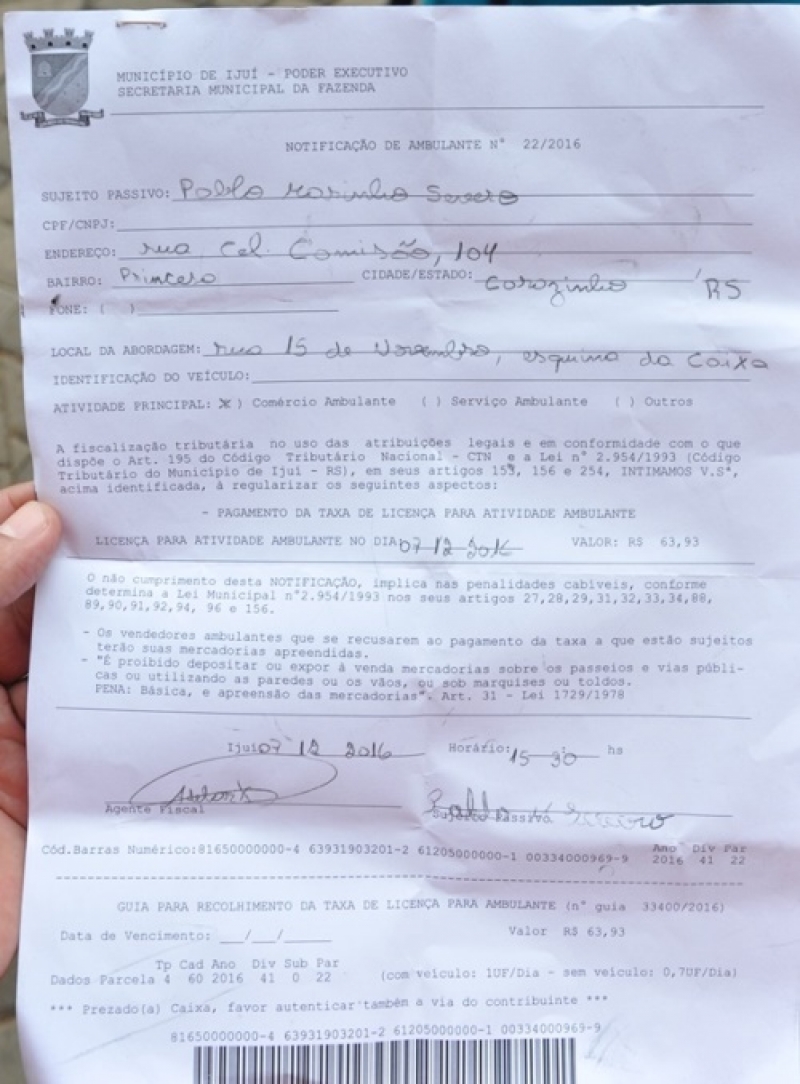 MUNICÍPIO DE IJUÍ - PODER EXECUTIVO
SECRETARIA MUNICIPAL DA FAZENDA
NOTIFICAÇÃO DE AMBULANTE N° 22/2016
SUJEITO PASSIVO: Pablo Marinho Severo
CPF/CNPJ:
ENDEREÇO: rua Cel. Comisão, 104
BAIRRO: Princesa CIDADE/ESTADO: Carazinho RS
FONE: ( )
LOCAL DA ABORDAGEM: rua 15 de Novembro, esquina da Caixa
IDENTIFICAÇÃO DO VEÍCULO:
ATIVIDADE PRINCIPAL: (X) Comércio Ambulante ( ) Serviço Ambulante ( ) Outros
A fiscalização tributária no uso das atribuições legais e em conformidade com o que
dispõe o Art. 195 do Código Tributário Nacional - CTN e a Lei n° 2.954/1993 (Código
Tributário do Município de Ijuí - RS), em seus artigos 153, 156 e 254, INTIMAMOS V.Sª,
acima identificada, à regularizar os seguintes aspectos:
- PAGAMENTO DA TAXA DE LICENÇA PARA ATIVIDADE AMBULANTE
LICENÇA PARA ATIVIDADE AMBULANTE NO DIA 07 12 2016 VALOR: R$ 63,93
O não cumprimento desta NOTIFICAÇÃO, implica nas penalidades cabíveis, conforme
determina a Lei Municipal n°2.954/1993 nos seus artigos 27,28,29,31,32,33,34,88,
89,90,91,92,94, 96 e 156.
- Os vendedores ambulantes que se recusarem ao pagamento da taxa a que estão sujeitos
terão suas mercadorias apreendidas.
- "É proibido depositar ou expor à venda mercadorias sobre os passeios e vias públi-
cas ou utilizando as paredes ou os vãos, ou sob marquises ou toldos.
PENA: Básica, e apreensão das mercadorias". Art. 31 - Lei 1729/1978
Ijuí 07 12 2016 Horário: 15 30 hs
Agente Fiscal Sujeito Passivo
Cód.Barras Numérico:81650000000-4 63931903201-2 61205000000-1 00334000969-9 Ano Div Par
2016 41 22
GUIA PARA RECOLHIMENTO DA TAXA DE LICENÇA PARA AMBULANTE (n° guia 33400/2016)
Data de Vencimento: __/__/____ Valor R$ 63,93
Tp Cad Ano Div Sub Par
Dados Parcela 4 60 2016 41 0 22 (com veículo: 1UF/Dia - sem veículo: 0,7UF/Dia)
*** Prezado(a) Caixa, favor autenticar também a via do contribuinte ***
81650000000-4 63931903201-2 61205000000-1 00334000969-9